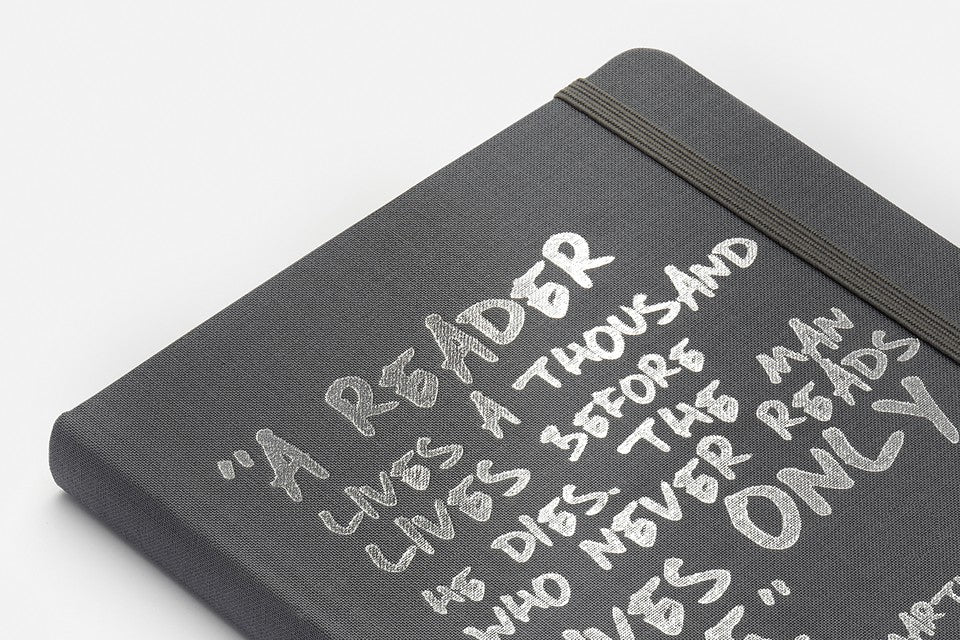 "A READER
LIVES A THOUSAND
LIVES BEFORE
HE DIES. THE MAN
WHO NEVER READS
VES ONLY
"